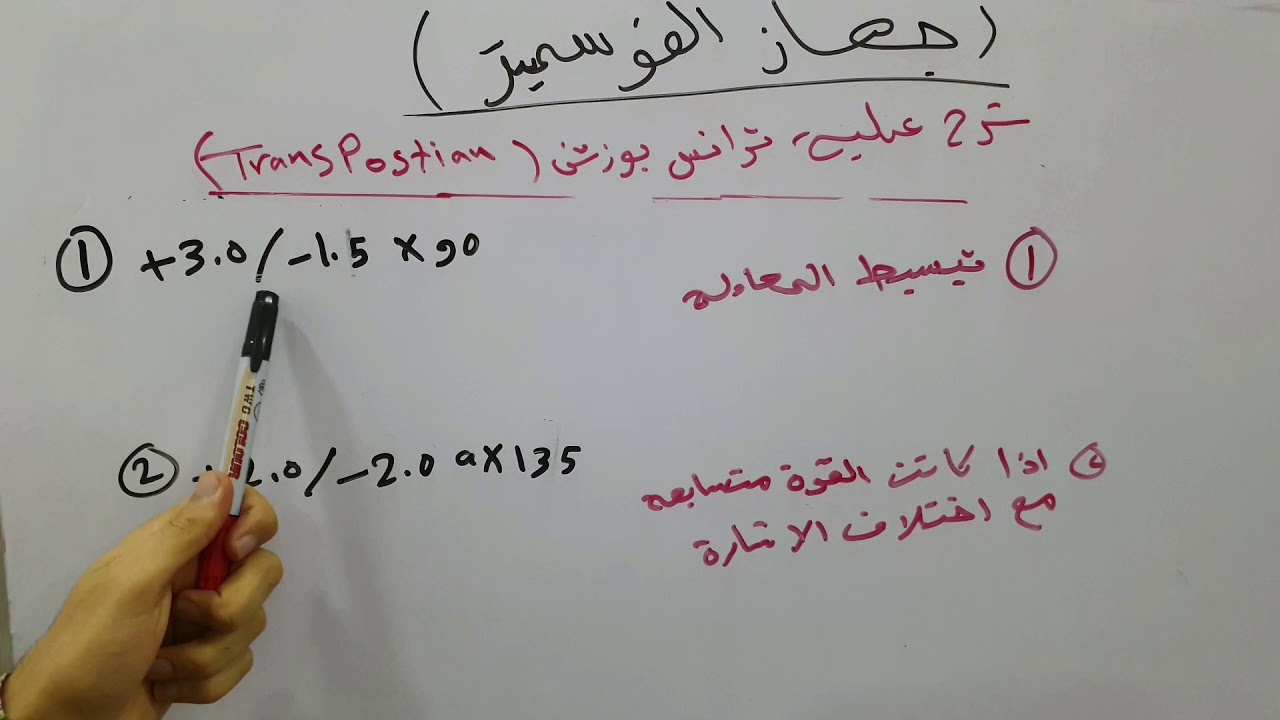 (جهاز الفوسميتر)
شرح عملية ترانس بوزشن (TransPostian)
① +3.0/-1.5 x 90
① تبسيط المعادلة
② +2.0/-2.0 ax 135
② اذا كانت القوة متسابعه
مع اختلاف الاشارة
TWO COLOUR